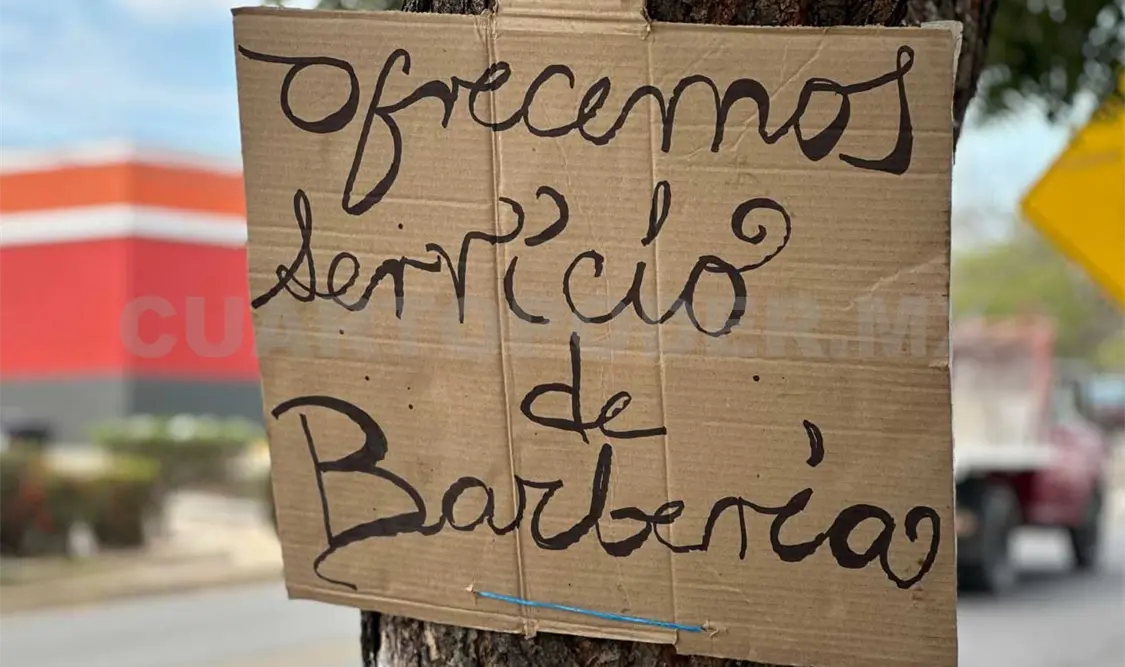 Ofrecemos
servicio
de
Barbería
CUARTOPODER.MX